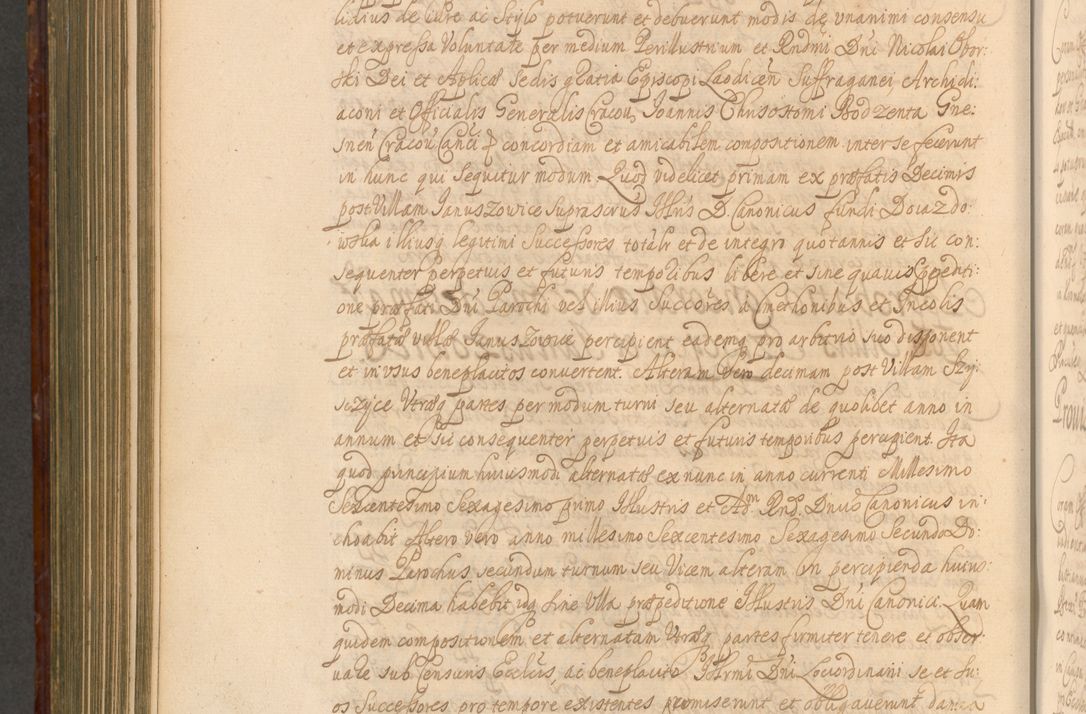 lidius de Cure ac Stylo potuerunt et debuerunt modis de vnanimi consensu
et expressa Voluntate per medium Perillustrium et Rndmi Dni Nicolai Obor:
ski Dei et Aplicæ Sedis gratia Episcopi Laodicen Suffraganei, Archidi:
aconi et Officialis Generalis Cracou, Joannis Chrisostomi Bodzenta Gne:
snen Cracou Canci ꝑ concordiam et amicabilem compositionem inter se fecerunt
in hunc qui sequitur modum, Quod videlicet primam ex præfatis Decimis
post Villam Januszowice suprascrus Illris D. Canonicus fundi Dciazdo:
wska illiusq legitimi Successores totalr et de integro quotannis et sic con:
sequenter perpetuis et futuris temporibus libere et sine quauis Ꝑpediti:
one præfati Dni Parochi vel illius Succores a Cmethonibus et Incolis
præfatæ villæ Januszowice percipient eademq pro arbitrio suo disponent
et in vsus beneplacitos conuertent. Alteram Vero decimam post Villam Szy:
sczyce Vtræq partes per modum turni seu alternatæ de quolibet anno in
annum et sic consequenter perpetuis et futuris temporibus percipient. Ita
quod principium huiusmodi alternatæ ex nunc in anno currenti Millesimo
Sexcentesimo Sexagesimo primo Illustris et Adm Rnd. Dnus Canonicus in:
choabit Altero vero anno millesimo Sexcentesimo Sexagesimo Secundo Do:
minus Parochus secundum turnum seu Vicem alteram in percipienda huius:
modi Decima habebit idq sine Vlla præpeditione Illustris Dni Canonici. Quam
quidem compositionem et alternatam Vtræq partes firmiter tenere et obser:
uare sub censuris Ecclcis, ac beneplacito Illrmi Dni Locordinarii se et su:
os Successores pro tempore existentes promiserunt et obligauerunt